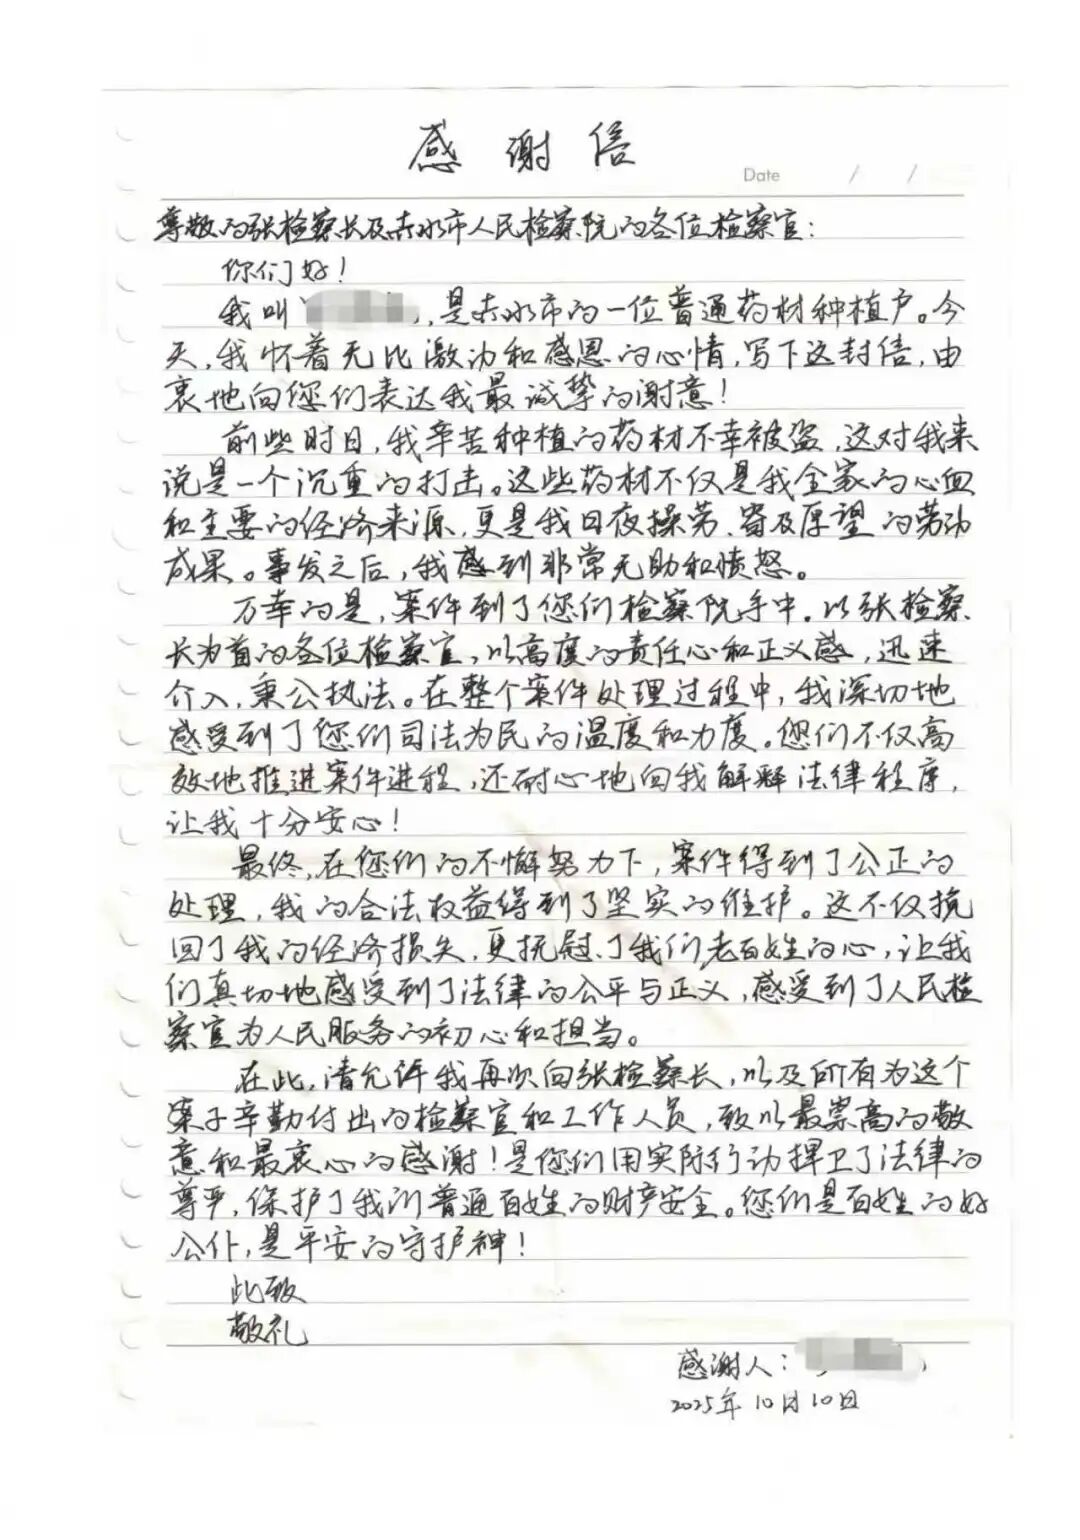 感谢信
Date / /
尊敬的张检察长及赤水市人民检察院的各位检察官：
你们好！
我叫，是赤水市的一位普通药材种植户。今
天，我怀着无比激动和感恩的心情，写下这封信，由
衷地向您们表达我最诚挚的谢意！
前些时日，我辛苦种植的药材不幸被盗，这对我来
说是一个沉重的打击。这些药材不仅是我全家的心血
和主要的经济来源，更是我日夜操劳、寄及厚望的劳动
成果。事发之后，我感到非常无助和愤怒。
万幸的是，案件到了您们检察院手中。以张检察
长为首的各位检察官，以高度的责任心和正义感，迅速
介入，秉公执法。在整个案件处理过程中，我深切地
感受到了您们司法为民的温度和力度。您们不仅高
效地推进案件进程，还耐心地向我解释法律程序，
让我十分安心！
最终，在您们的不懈努力下，案件得到了公正的
处理，我的合法权益得到了坚实的维护。这不仅挽
回了我的经济损失，更抚慰了我们老百姓的心，让我
们真切地感受到了法律的公平与正义，感受到了人民检
察官为人民服务的初心和担当。
在此，请允许我再次向张检察长，以及所有为这个
案子辛勤付出的检察官和工作人员，致以最崇高的敬
意和最衷心的感谢！是您们用实际行动捍卫了法律的
尊严，保护了我们普通百姓的财产安全。您们是百姓的好
公仆，是平安的守护神！
此致
敬礼
感谢人：
2025年10月10日